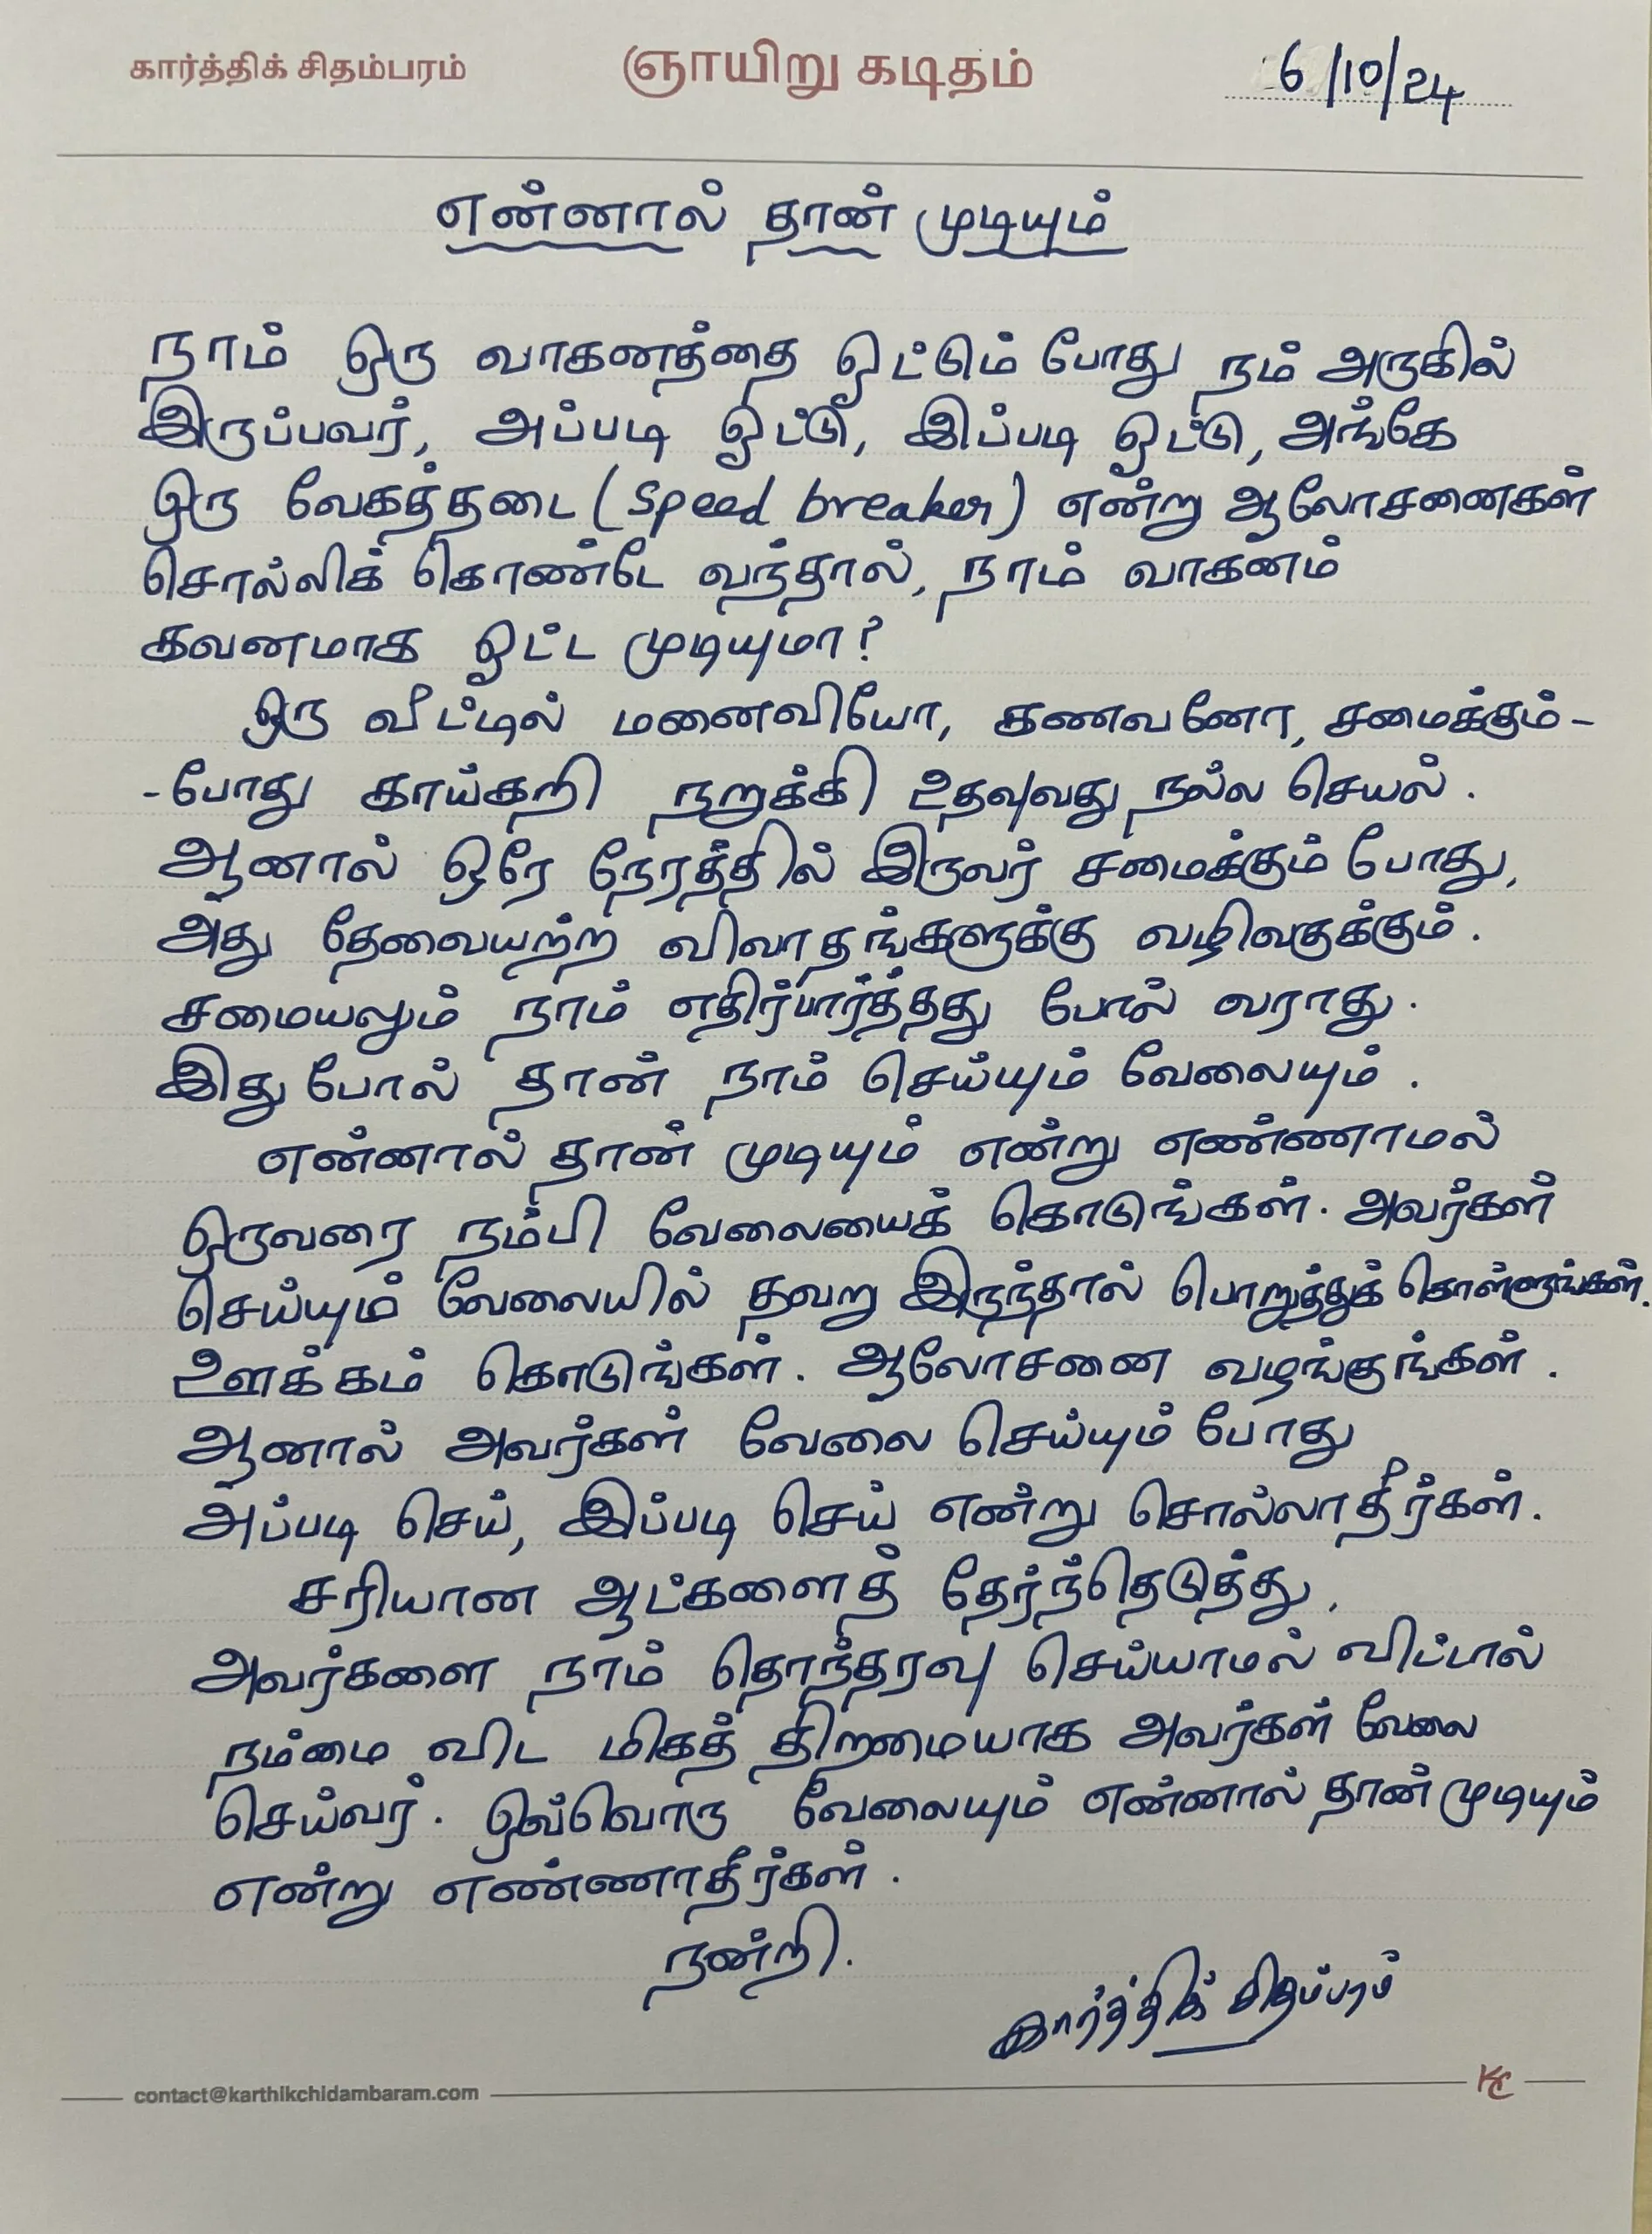 கார்த்திக் சிதம்பரம் ஞாயிறு கடிதம் 6/10/24
என்னால் தான் முடியும்
நாம் ஒரு வாகனத்தை ஓட்டும் போது நம் அருகில்
இருப்பவர், அப்படி ஓட்டு, இப்படி ஓட்டு, அங்கே
ஒரு வேகத்தடை (Speed breaker) என்று ஆலோசனைகள்
சொல்லிக் கொண்டே வந்தால், நாம் வாகனம்
கவனமாக ஓட்ட முடியுமா?
ஒரு வீட்டில் மனைவியோ, கணவனோ, சமைக்கும்-
-போது காய்கறி நறுக்கி உதவுவது நல்ல செயல்.
ஆனால் ஒரே நேரத்தில் இருவர் சமைக்கும் போது,
அது தேவையற்ற விவாதங்களுக்கு வழிவகுக்கும்.
சமையலும் நாம் எதிர்பார்த்தது போல் வராது.
இது போல் தான் நாம் செய்யும் வேலையும்.
என்னால் தான் முடியும் என்று எண்ணாமல்
ஒருவரை நம்பி வேலையைக் கொடுங்கள். அவர்கள்
செய்யும் வேலையில் தவறு இருந்தால் பொறுத்துக் கொள்ளுங்கள்.
ஊக்கம் கொடுங்கள். ஆலோசனை வழங்குங்கள்.
ஆனால் அவர்கள் வேலை செய்யும் போது
அப்படி செய், இப்படி செய் என்று சொல்லாதீர்கள்.
சரியான ஆட்களைத் தேர்ந்தெடுத்து,
அவர்களை நாம் தொந்தரவு செய்யாமல் விட்டால்
நம்மை விட மிகத் திறமையாக அவர்கள் வேலை
செய்வர். ஒவ்வொரு வேலையும் என்னால் தான் முடியும்
என்று எண்ணாதீர்கள்.
நன்றி.
கார்த்திக் சிதம்பரம்
contact@karthikchidambaram.com KC